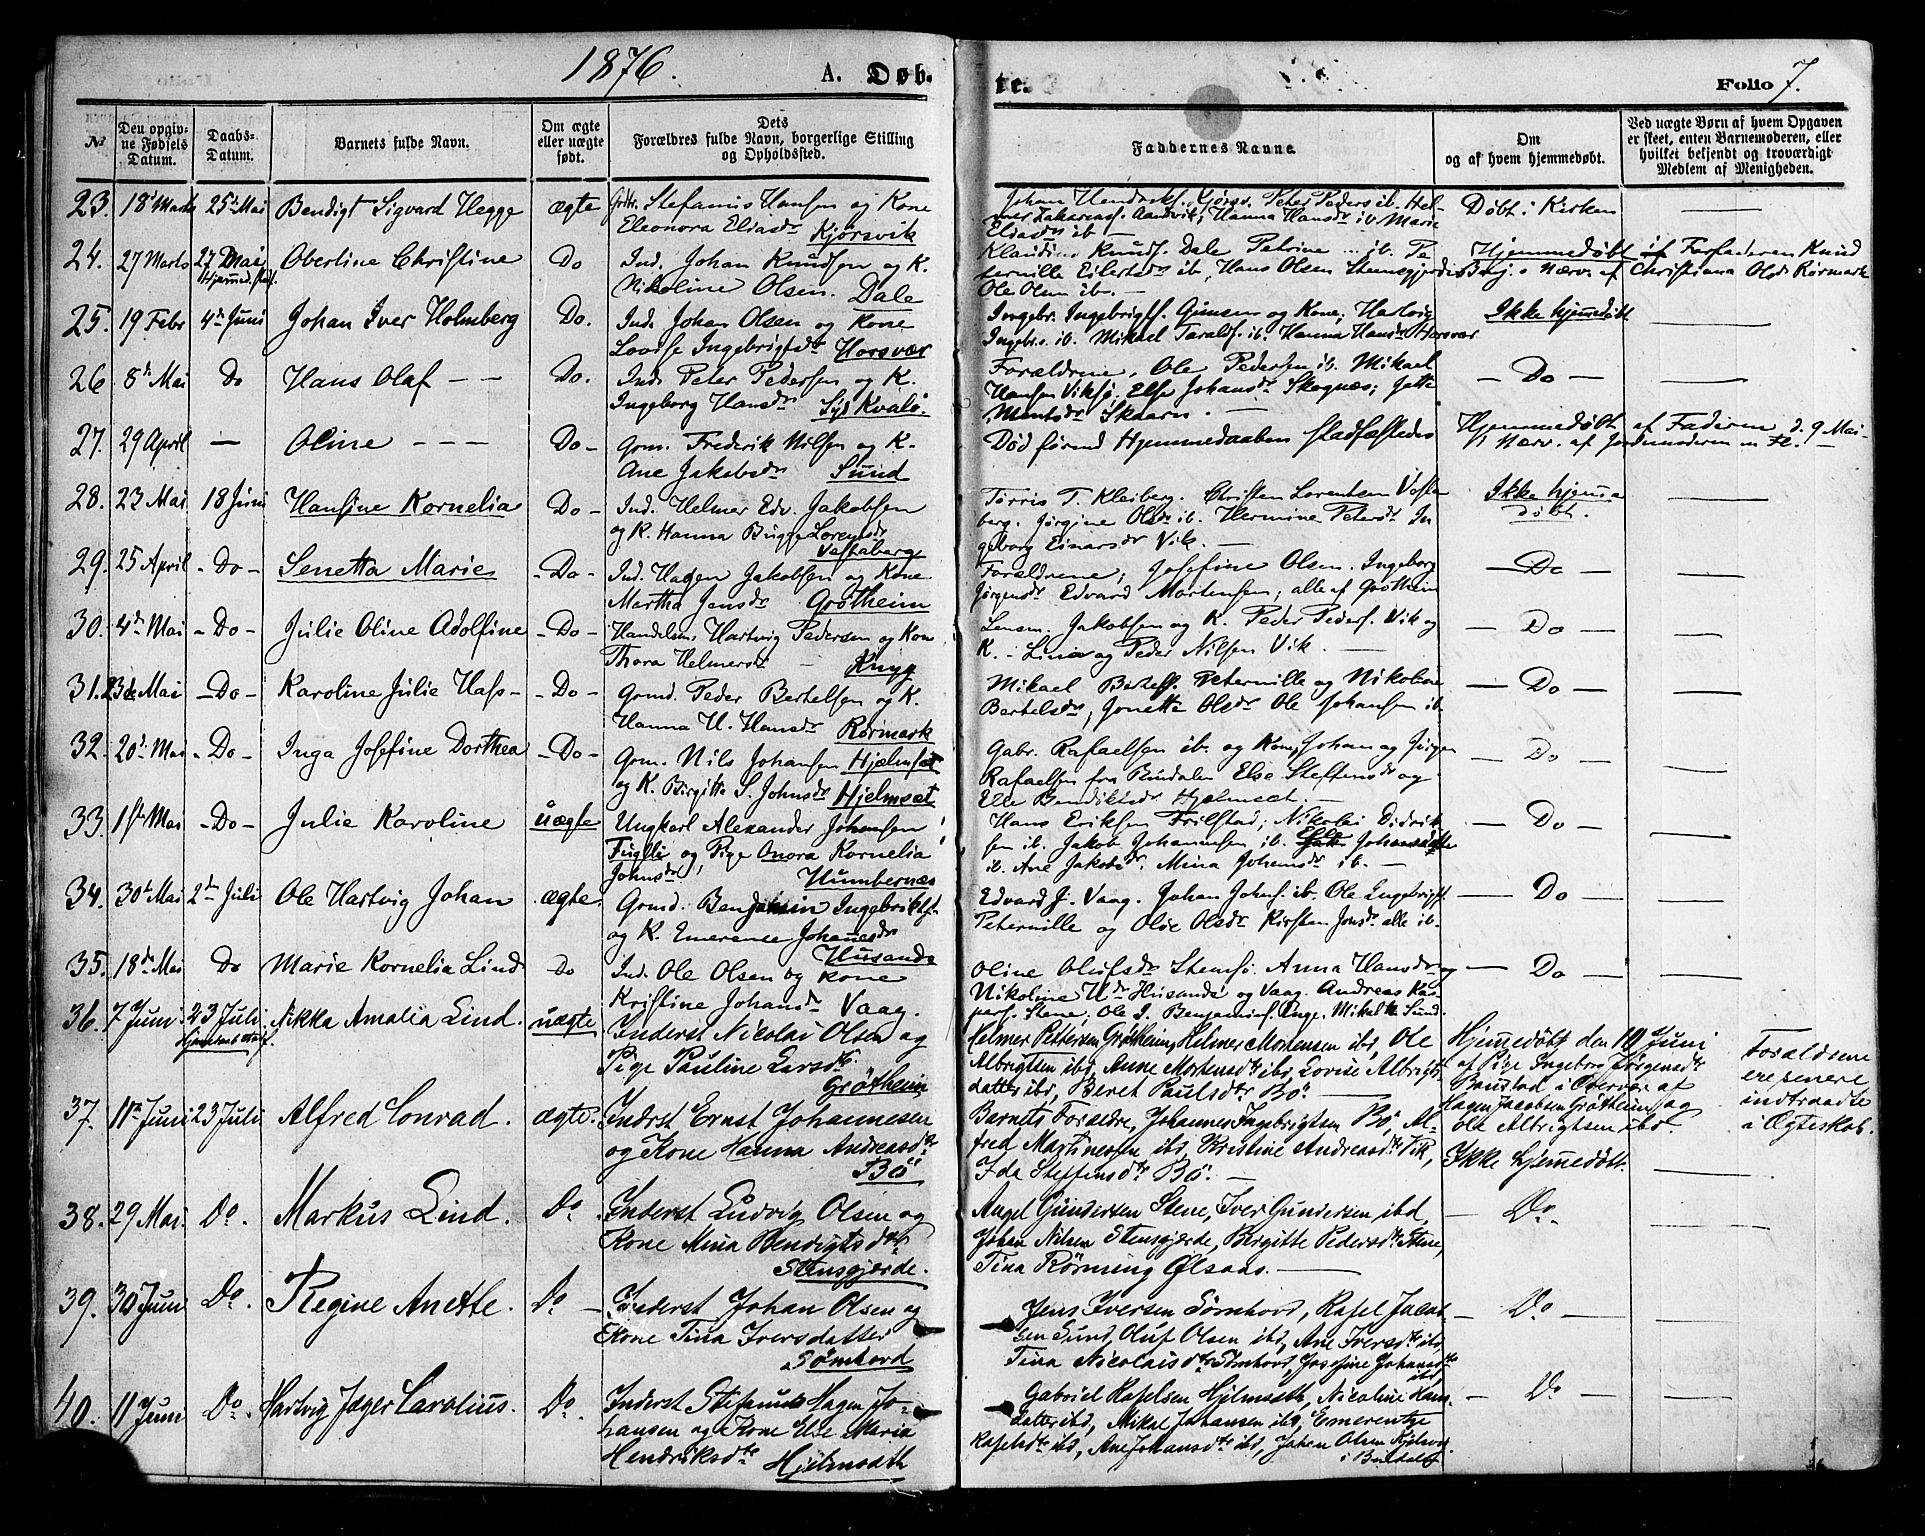 1876.
A. Døb-
te.
Folio 7.
№
Den opgiv-
ne Fødsels
Datum.
Daabs-
Datum.
Barnets fulde Navn.
Om ægte
eller uægte
født.
Dets
Forældres fulde Navn, borgerlige Stilling
og Opholdssted.
Faddernes Navne.
Om
og af hvem hjemmedøbt.
Ved uægte Børn af hvem Opgaven
er skeet, enten Barnemoderen, eller
hvilket bekjendt og troværdigt
Medlem af Menigheden.
23. 18de Marts 25de Mai Bendigt Sigvard Hegge ægte Stefanus Hansen og Kone
Eleonora Eliasdr Kjørsvik
Johan Hendriks. Kjørsv. Peter Peders ib. Hel-
mer Zakarias. Aandvik, Hanna Hansdr ib. Marie
Eliasdr ib —
Døbt i Kirken
24. 27 Marts 27 Mai Obertine Christine Do Ind. Johan Knudsen og K.
Nikoline Olsen. Dale
Klaudius Knuds. Dale Petrine ... ib. Pe-
ternille Eilertsdr ib, Hans Olsen Stensgjerde
Ole Olsen ib —
Hjemmedøbt af Farfaderen Knud
Benj. i Nærv. af Christiana Olsdr Rørmark
25. 19 Febr 4de Juni Johan Iver Holmberg Do. Ind. Johan Olsen og Kone
Lovise Ingebrigtsdr Horsvær
Ingebr. Ingebrigts. og Kone, Hartvig
Ingebr. ib. Mikael Taralds. ib. Hanna Hansdr Horsvær
Ikke hjemmedøbt
26. 8de Mai Do Hans Olaf — — Do. Ind. Peter Pedersen og K.
Ingeborg Hansdr Syd Kvalø.
Forældrene, Ole Pedersen ib. Mikael
Hansen Viksø, Else Johansdr Skognæs; Jette
Mentsdr Skaarn. —
— Do —
27. 29 April — Oline — — — Do — Grm. Frederik Nilsen og K.
Ane Jakobsdr Sund
Død førend Hjemmedaaben stadfæstedes
Hjemmedøbt af Faderen d. 9 Mai
i Nærv. af Jordmoderen m. Fl. —
28. 23 Mai 18 Juni Hansine Kornelia Do — Ind. Helmer Edv. Jakobsen
og K. Hanna Bugge Lorentsdr
Vestaberg
Tørris T. Kleiberg. Christen Lorentsen Vesta-
berg. Jørgine Olsdr ib. Hermine Petersdr In-
geborg Einarsdr Vik. —
Ikke hjemme
døbt.
29. 25 April — Do — Senetta Marie — Do — Ind. Hagen Jakobsen og Kone
Martha Jensdr Grøtheim
Forældrene; Josefine Olsen. Ingeborg
Jørgensdr Edvard Mortensen; alle af Grøtheim
— Do —
30. 4de Mai — Do — Julie Oline Adolfine — Do — Handelsm. Hartvig Pedersen og Kone
Thora Helmersdr — Knyp
Lensm. Jakobsen og K. Peder Peders. Vik og
K. — Lina og Peder Nilsen Vik. —
— Do —
31. 23de Mai — Do — Karoline Julie Hass — — Do — Grmd. Peder Bertelsen og K.
Hanna H. Hansdr Rørmark
Mikael Bertels. Peternille og Nikoline
Bertelsdr, Jonetta Olsdr Ole Johansen ib
— Do —
32. 20de Mai — Do — Inga Josefine Dorthea — Do — Grm. Nils Johansen Hjelmset
og K. Birgitta S. Johnsdr Hjelmset
Gabr. Rafaelsen ib. og Kone, Johan og Jørgen
Rafaelsen fra Bindalen Else Steffensdr og
Elle Bendiktsdr Hjelmset. —
— Do —
33. 1ste Mai — Do — Julie Karoline uægte Ungkarl Alexander Johansen
Fuglli og Pige Onora Kornelia
Johnsdr Humbernæs
Hans Eriksen Frilstad; Nikolai Didrik-
sen ib. Jakob Johannsen ib. Elle Johansdtr
ib. Ane Jakobsdr. Mina Johansdr ib. —
— Do —
34. 30de Mai 2den Juli Ole Hartvig Johan ægte. Grmd. Benjamin Ingebrigts.
og K. Emerense Johansdr
Husande
Edvard J. Vaag. Johan Johns. ib. Ole Engebrigts.
Peternille og Oline Olsdr Kirsten Jonsdr alle ib.
— Do —
35. 18de Mai Do Marie Kornelia Lind Do Ind. Ole Olsen og Kone
Kristine Johansdr Vaag.
Oline Olufsdr Stemsø. Anna Hansdr og
Nikoline Hdr Husande og Vaag. Andreas Kas-
pers. Stene; Ole I. Benjamins. Sund.
— Do —
36. 7 Juni 23 Juli Nikka Amalia Lind. uægte Inderst Nicolai Olsen og
Pige Pauline Larsdtr
Grøtheim
Helmer Pettersen Grøtheim, Helmer Mortensen ibd, Ole
Albrigtsen ibd, Anne Mortensdtr ibd, Lovise Albrigts-
datter ibd, Beret Paulsdtr Bø. —
Hjemmedøbt den 10 Juni
af Pige Ingeborg Jørgensdtr
Baustad i Overvær af
Hagen Jacobsen Grøtheim og
Ole Albrigtsen ibd.
Forældrene
ere senere
indtraadte
i Ægteskab.
37. 11te Juni 23 Juli Alfred Conrad. ægte. Indrst Ernst Johannesen
og Kone Hanna Andreasdtr
Bø
Barnets Forældre, Johannes Ingebrigtsen Bø, Al-
fred Martinessen ibd, Kristine Andreasdtr Vik,
Ida Steffensdtr Bø. —
Ikke hjemmedøbt.
38. 29 Mai. Do. Markus Lind. Do. Inderst Ludvig Olsen og
Kone Mina Bendigtsdtr
Stensgjærde.
Angel Gundersen Stene, Iver Gundersen ibd,
Johan Nilsen Stensgjærde, Bergitte Pedersdtr Stene,
Tina Rørning Ølsaas. —
— Do.
39. 30 Juni Do. Regine Anette. Do — Inderst Johan Olsen og
Kone Tina Iversdatter
Sømhord
Jens Iversen Sømhord, Rafel Jacob-
sen Sund, Oluf Olsen ibd, Ane Iversdtr ibd,
Tina Nicolaisdtr Sømhord, Josefine Johansdtr
ibd
— Do —
40. 11 Juni Do. Hartvig Jæger Carolius. Do. Inderst Stefanus Hagen Jo-
hansen og Kone Else Maria
Hendriksdtr Hjelmseth
Gabriel Rafelsen Hjelmseth, Nicoline Hans-
datter ibd, Mikal Johansen ibd, Emerentze
Rafelsdtr ibd, Ane Johansdtr ibd, Johan Olsen
i Bindalen
— Do —